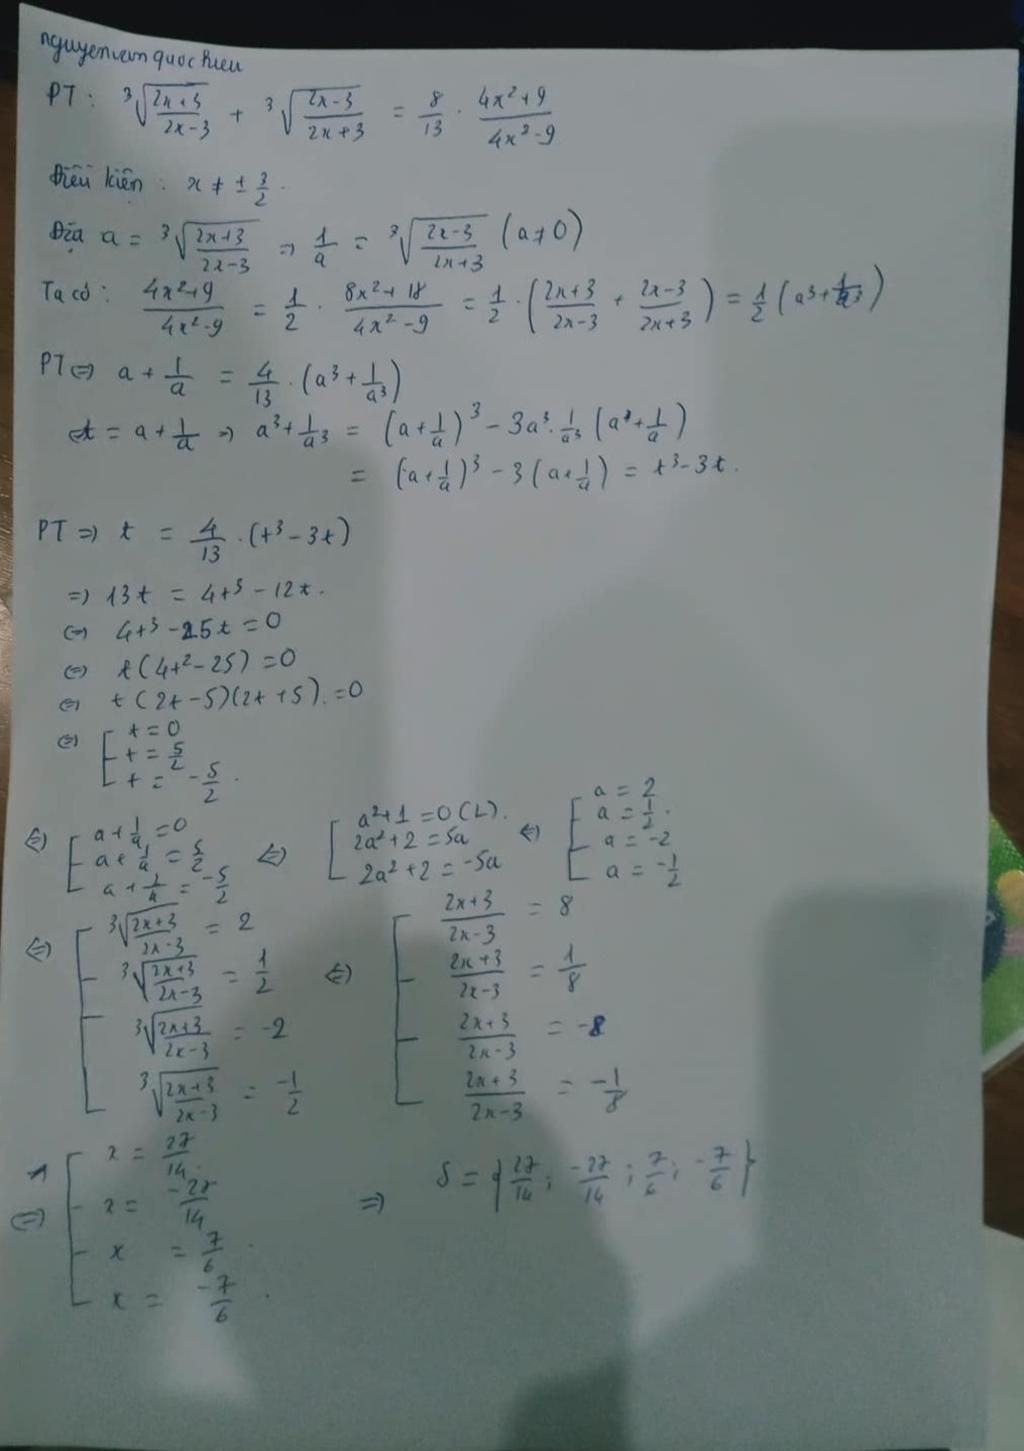 nguyenvanquochieu
PT: ∛((2x+3)/(2x-3)) + ∛((2x-3)/(2x+3)) = 8/13 · (4x²+9)/(4x²-9)
Điều kiện: x ≠ ± 3/2.
Đặt a = ∛((2x+3)/(2x-3)) => 1/a = ∛((2x-3)/(2x+3)) (a≠0)
Ta có: (4x²+9)/(4x²-9) = 1/2 · (8x²+18)/(4x²-9) = 1/2 · ((2x+3)/(2x-3) + (2x-3)/(2x+3)) = 1/2 (a³+1/a³)
PT <=> a + 1/a = 4/13 · (a³ + 1/a³)
t = a + 1/a => a³ + 1/a³ = (a+1/a)³ - 3a³·1/a³ (a³+1/a)
= (a+1/a)³ - 3(a+1/a) = t³-3t.
PT => t = 4/13 · (t³-3t)
=> 13t = 4t³ - 12t.
<=> 4t³ - 25t = 0
<=> t(4t²-25) = 0
<=> t(2t-5)(2t+5). = 0
<=> [ t = 0
t = 5/2
t = -5/2.
<=> [ a + 1/a = 0 <=> [ a²+1 = 0 (L). <=> [ a = 2
a + 1/a = 5/2 2a²+2 = 5a a = 1/2.
a + 1/a = -5/2 2a²+2 = -5a a = -2
a = -1/2
<=> [ ∛((2x+3)/(2x-3)) = 2 <=> [ (2x+3)/(2x-3) = 8
∛((2x+3)/(2x-3)) = 1/2 (2x+3)/(2x-3) = 1/8
∛((2x+3)/(2x-3)) = -2 (2x+3)/(2x-3) = -8
∛((2x+3)/(2x-3)) = -1/2 (2x+3)/(2x-3) = -1/8
<=> [ x = 27/14. => S = {27/14; -27/14; 7/6; -7/6}
x = -27/14
x = 7/6.
x = -7/6.